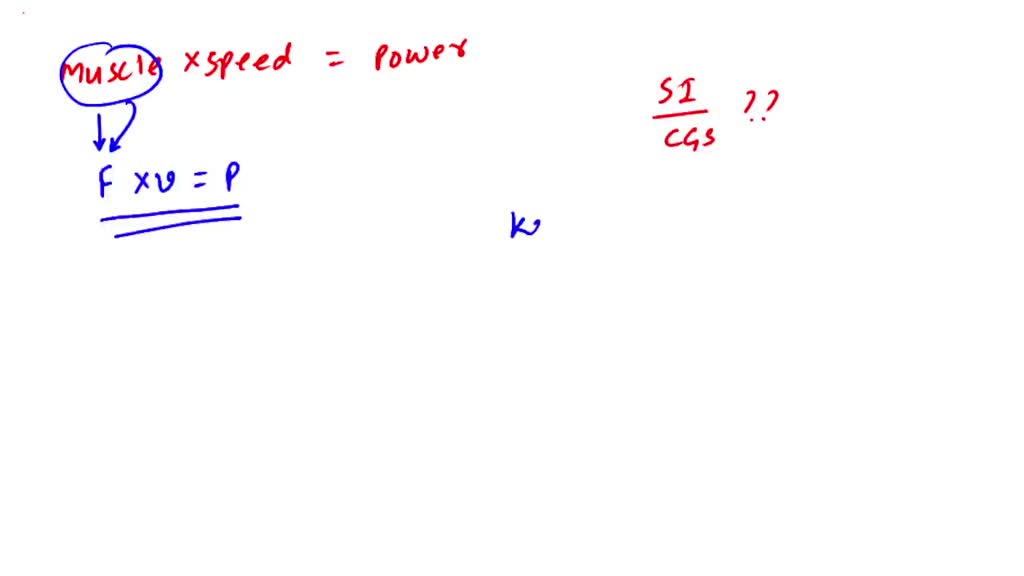 Muscle × speed = Power
SI
CGS
??
F × v = P